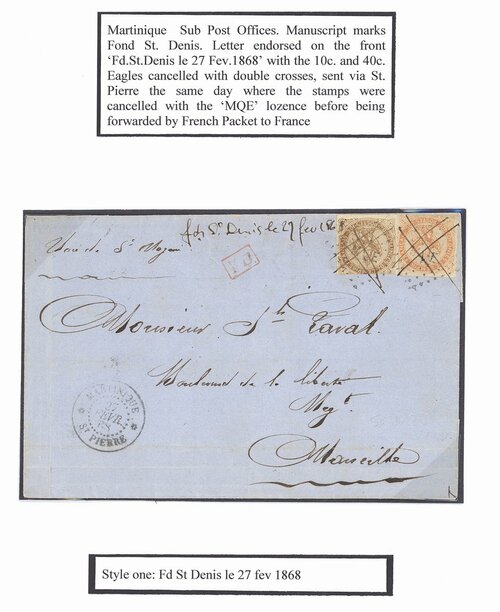 Martinique Sub Post Offices. Manuscript marks
Fond St. Denis. Letter endorsed on the front
‘Fd.St.Denis le 27 Fev.1868’ with the 10c. and 40c.
Eagles cancelled with double crosses, sent via St.
Pierre the same day where the stamps were
cancelled with the ‘MQE’ lozence before being
forwarded by French Packet to France
fd. St Denis le 27 fev 1868
Voie de St Nazaire
P.D.
Monsieur Jh Laval
Boulevard de la liberté
Negt.
Marseille
MARTINIQUE
27
FEVR
68
ST PIERRE
Style one: Fd St Denis le 27 fev 1868